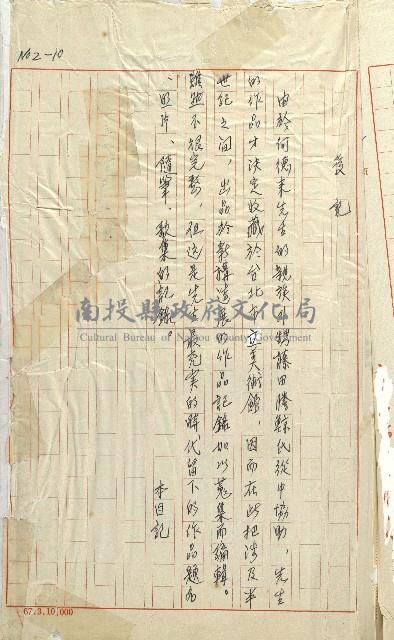 No 2-10
後記
由於何德来先生的親族甥藤田騰鯨氏從中協助，先生
的作品才決定收藏於台北市立美術館，因而在此把涉及半
世紀之间，出品於新構造展的作品記錄加以蒐集而編輯。
雖然不很完整，但这是先生最充実的時代留下的作品題名
、照片、隨筆、歌集的記錄。
李旦記
南投縣政府文化局
Cultural Bureau of Nantou County Government
67.3.10,000